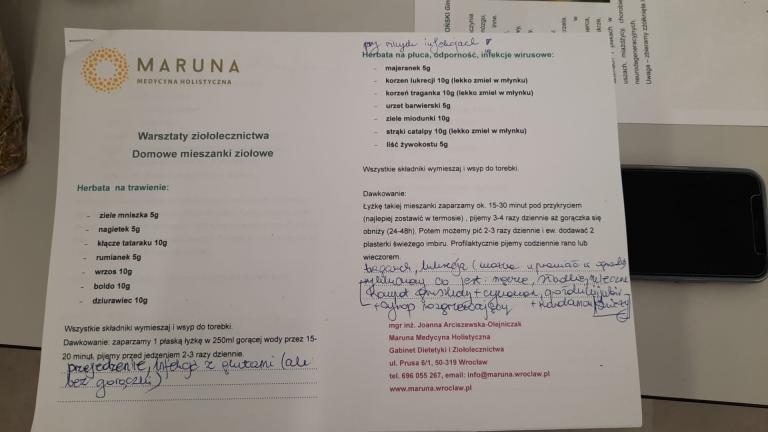 MARUNA
MEDYCYNA HOLISTYCZNA
Warsztaty ziołolecznictwa
Domowe mieszanki ziołowe
Herbata na trawienie:
- ziele mniszka 5g
- nagietek 5g
- kłącze tataraku 10g
- rumianek 5g
- wrzos 10g
- boldo 10g
- dziurawiec 10g
Wszystkie składniki wymieszaj i wsyp do torebki.
Dawkowanie: zaparzamy 1 płaską łyżkę w 250ml gorącej wody przez 15-
20 minut, pijemy przed jedzeniem 2-3 razy dziennie.
przejedzenie, infekcje z glutami (ale
bez gorączki)
przy infekcjach
Herbata na płuca, odporność, infekcje wirusowe:
- majeranek 5g
- korzen lukrecji 10g (lekko zmiel w młynku)
- korzeń traganka 10g (lekko zmiel w młynku)
- urzet barwierski 5g
- ziele miodunki 10g
- strąki catalpy 10g (lekko zmiel w młynku)
- liść żywokostu 5g
Wszystkie składniki wymieszaj i wsyp do torebki.
Dawkowanie:
Łyżkę takiej mieszanki zaparzamy ok. 15-30 minut pod przykryciem
(najlepiej zostawić w termosie) , pijemy 3-4 razy dziennie aż gorączka się
obniży (24-48h). Potem możemy pić 2-3 razy dziennie i ew. dodawać 2
plasterki świeżego imbiru. Profilaktycznie pijemy codziennie rano lub
wieczorem.
lukrecja (można
co jest
Kompot gruszkowy + cynamon, goździki, imbir
+ syrop rozgrzewający + kardamon
mgr inż. Joanna Arciszewska-Olejniczak
Maruna Medycyna Holistyczna
Gabinet Dietetyki i Ziołolecznictwa
ul. Prusa 6/1, 50-319 Wrocław
tel. 696 055 267, email: info@maruna.wroclaw.pl
www.maruna.wroclaw.pl